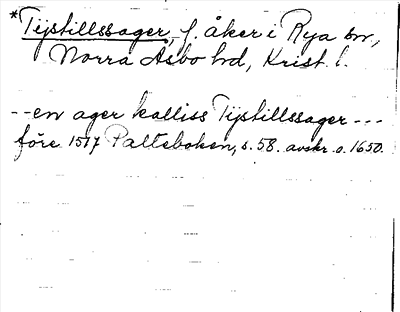 *Tijstillssager, f. åker i Rya sn.,
Norra Åsbo hd, Krist. l.
--en ager kalliss Tijstillssager---
före 1517 Palteboken, s. 58. avskr. o. 1650.